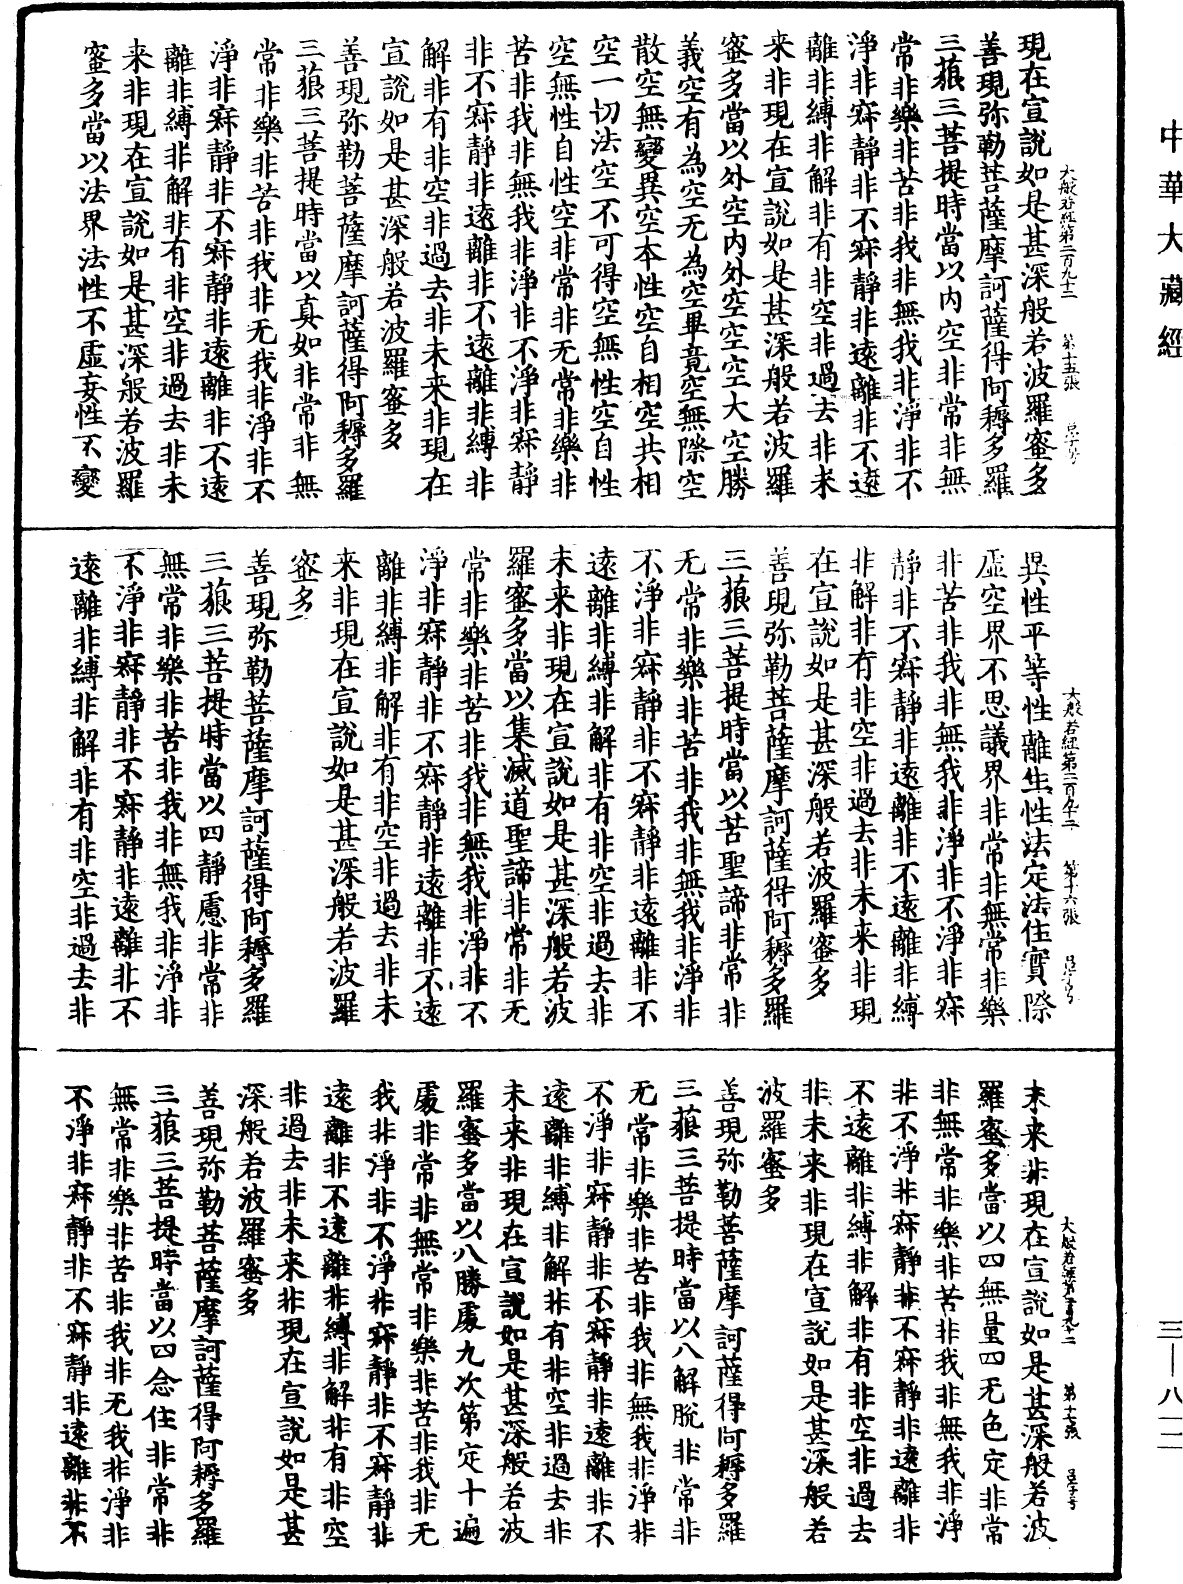 中華大藏經
現在宣說如是甚深般若波羅蜜多
善現弥勒菩薩摩訶薩得阿耨多羅
三藐三菩提時當以内空非常非無
常非樂非苦非我非無我非淨非不
淨非寂靜非不寂靜非遠離非不遠
離非縛非解非有非空非過去非未
来非現在宣說如是甚深般若波羅
蜜多當以外空内外空空空大空勝
義空有為空无為空畢竟空無際空
散空無變異空本性空自相空共相
空一切法空不可得空無性空自性
空無性自性空非常非无常非樂非
苦非我非無我非淨非不淨非寂靜
非不寂靜非遠離非不遠離非縛非
解非有非空非過去非未来非現在
宣說如是甚深般若波羅蜜多
善現弥勒菩薩摩訶薩得阿耨多羅
三藐三菩提時當以真如非常非無
常非樂非苦非我非无我非淨非不
淨非寂靜非不寂靜非遠離非不遠
離非縛非解非有非空非過去非未
来非現在宣說如是甚深般若波羅
蜜多當以法界法性不虛妄性不變
大般若經第二百九十二 第十五張
異性平等性離生性法定法住實際
虛空界不思議界非常非無常非樂
非苦非我非無我非淨非不淨非寂
靜非不寂靜非遠離非不遠離非縛
非解非有非空非過去非未来非現
在宣說如是甚深般若波羅蜜多
善現弥勒菩薩摩訶薩得阿耨多羅
三藐三菩提時當以苦聖諦非常非
无常非樂非苦非我非無我非淨非
不淨非寂靜非不寂靜非遠離非不
遠離非縛非解非有非空非過去非
未来非現在宣說如是甚深般若波
羅蜜多當以集滅道聖諦非常非无
常非樂非苦非我非無我非淨非不
淨非寂靜非不寂靜非遠離非不遠
離非縛非解非有非空非過去非未
来非現在宣說如是甚深般若波羅
蜜多
善現弥勒菩薩摩訶薩得阿耨多羅
三藐三菩提時當以四靜慮非常非
無常非樂非苦非我非無我非淨非
不淨非寂靜非不寂靜非遠離非不
遠離非縛非解非有非空非過去非
大般若經第二百九十二 第十六張
未来非現在宣說如是甚深般若波
羅蜜多當以四無量四无色定非常
非無常非樂非苦非我非無我非淨
非不淨非寂靜非不寂靜非遠離非
不遠離非縛非解非有非空非過去
非未来非現在宣說如是甚深般若
波羅蜜多
善現弥勒菩薩摩訶薩得阿耨多羅
三藐三菩提時當以八解脫非常非
无常非樂非苦非我非無我非淨非
不淨非寂靜非不寂靜非遠離非不
遠離非縛非解非有非空非過去非
未来非現在宣說如是甚深般若波
羅蜜多當以八勝處九次第定十遍
處非常非無常非樂非苦非我非无
我非淨非不淨非寂靜非不寂靜非
遠離非不遠離非縛非解非有非空
非過去非未来非現在宣說如是甚
深般若波羅蜜多
善現弥勒菩薩摩訶薩得阿耨多羅
三藐三菩提時當以四念住非常非
無常非樂非苦非我非无我非淨非
不淨非寂靜非不寂靜非遠離非不
大般若經第二百九十二 第十七張
三—八一一